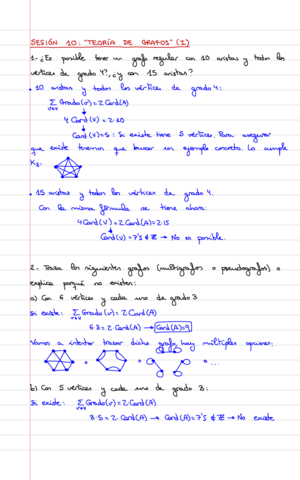 SESIÓN 10: "TEORÍA DE GRAFOS" (I)
1.- ¿Es posible tener un grafo regular con 10 aristas y todos los
vértices de grado 4?, ¿y con 15 aristas?
• 10 aristas y todos los vértices de grado 4:
∑ Grado(v) = 2 Card(A)
v∈V
4 Card(V) = 2·10
Card(V) = 5: Sí existe tiene 5 vértices. Para asegurar
que existe tenemos que buscar un ejemplo concreto. Lo cumple
K5:
• 15 aristas y todos los vértices de grado 4.
Con la misma fórmula se tiene ahora:
4 Card(V) = 2 Card(A) = 2·15
Card(V) = 7'5 ∉ ℤ → No es posible.
2.- Traza los siguientes grafos (multigrafos o pseudografos) o
explica porqué no existen:
a) Con 6 vértices y cada uno de grado 3
Si existe: ∑ Grado(v) = 2 Card(A)
v∈V
6·3 = 2·Card(A) → Card(A) = 9
Vamos a intentar trazar dicho grafo, hay múltiples opciones:
o o = ...
b) Con 5 vértices y cada uno de grado 3:
Si existe: ∑ Grado(v) = 2·Card(A)
v∈V
3·5 = 2·Card(A) → Card(A) = 7'5 ∉ ℤ → No existe